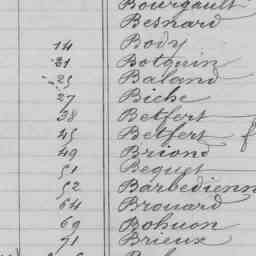 Bourgault
Besnard
14 Body
21 Botquin
25 Baland
27 Biche
38 Betfert
45 Betfert
49 Briond
51 Beguet
52 Barbedienn
64 Brouard
69 Bohuon
71 Brieux